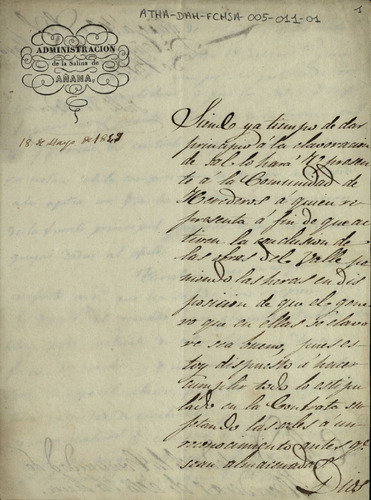 ATHA-DAH-FCHSA-005-011-01
1
ADMINISTRACION
de la Salina de
AÑANA.
18 de Mayo de 1857
Siendo ya tiempo de dar
principio á la elavoracion
de sal lo hará V. presen
te á la Comunidad de
Herederos a quien re
presenta á fin de que ac
tiven la conclusion de
las obras del Valle po
niendo las heras en dis
posicion de que el gene
ro que en ellas se elavo
re sea bueno, pues es
toy dispuesto á hacer
cumplir todo lo estipu
lado en la Contrata su
plando las sales á un
reconocimiento antes q.e
sean almacenadas.
Dios